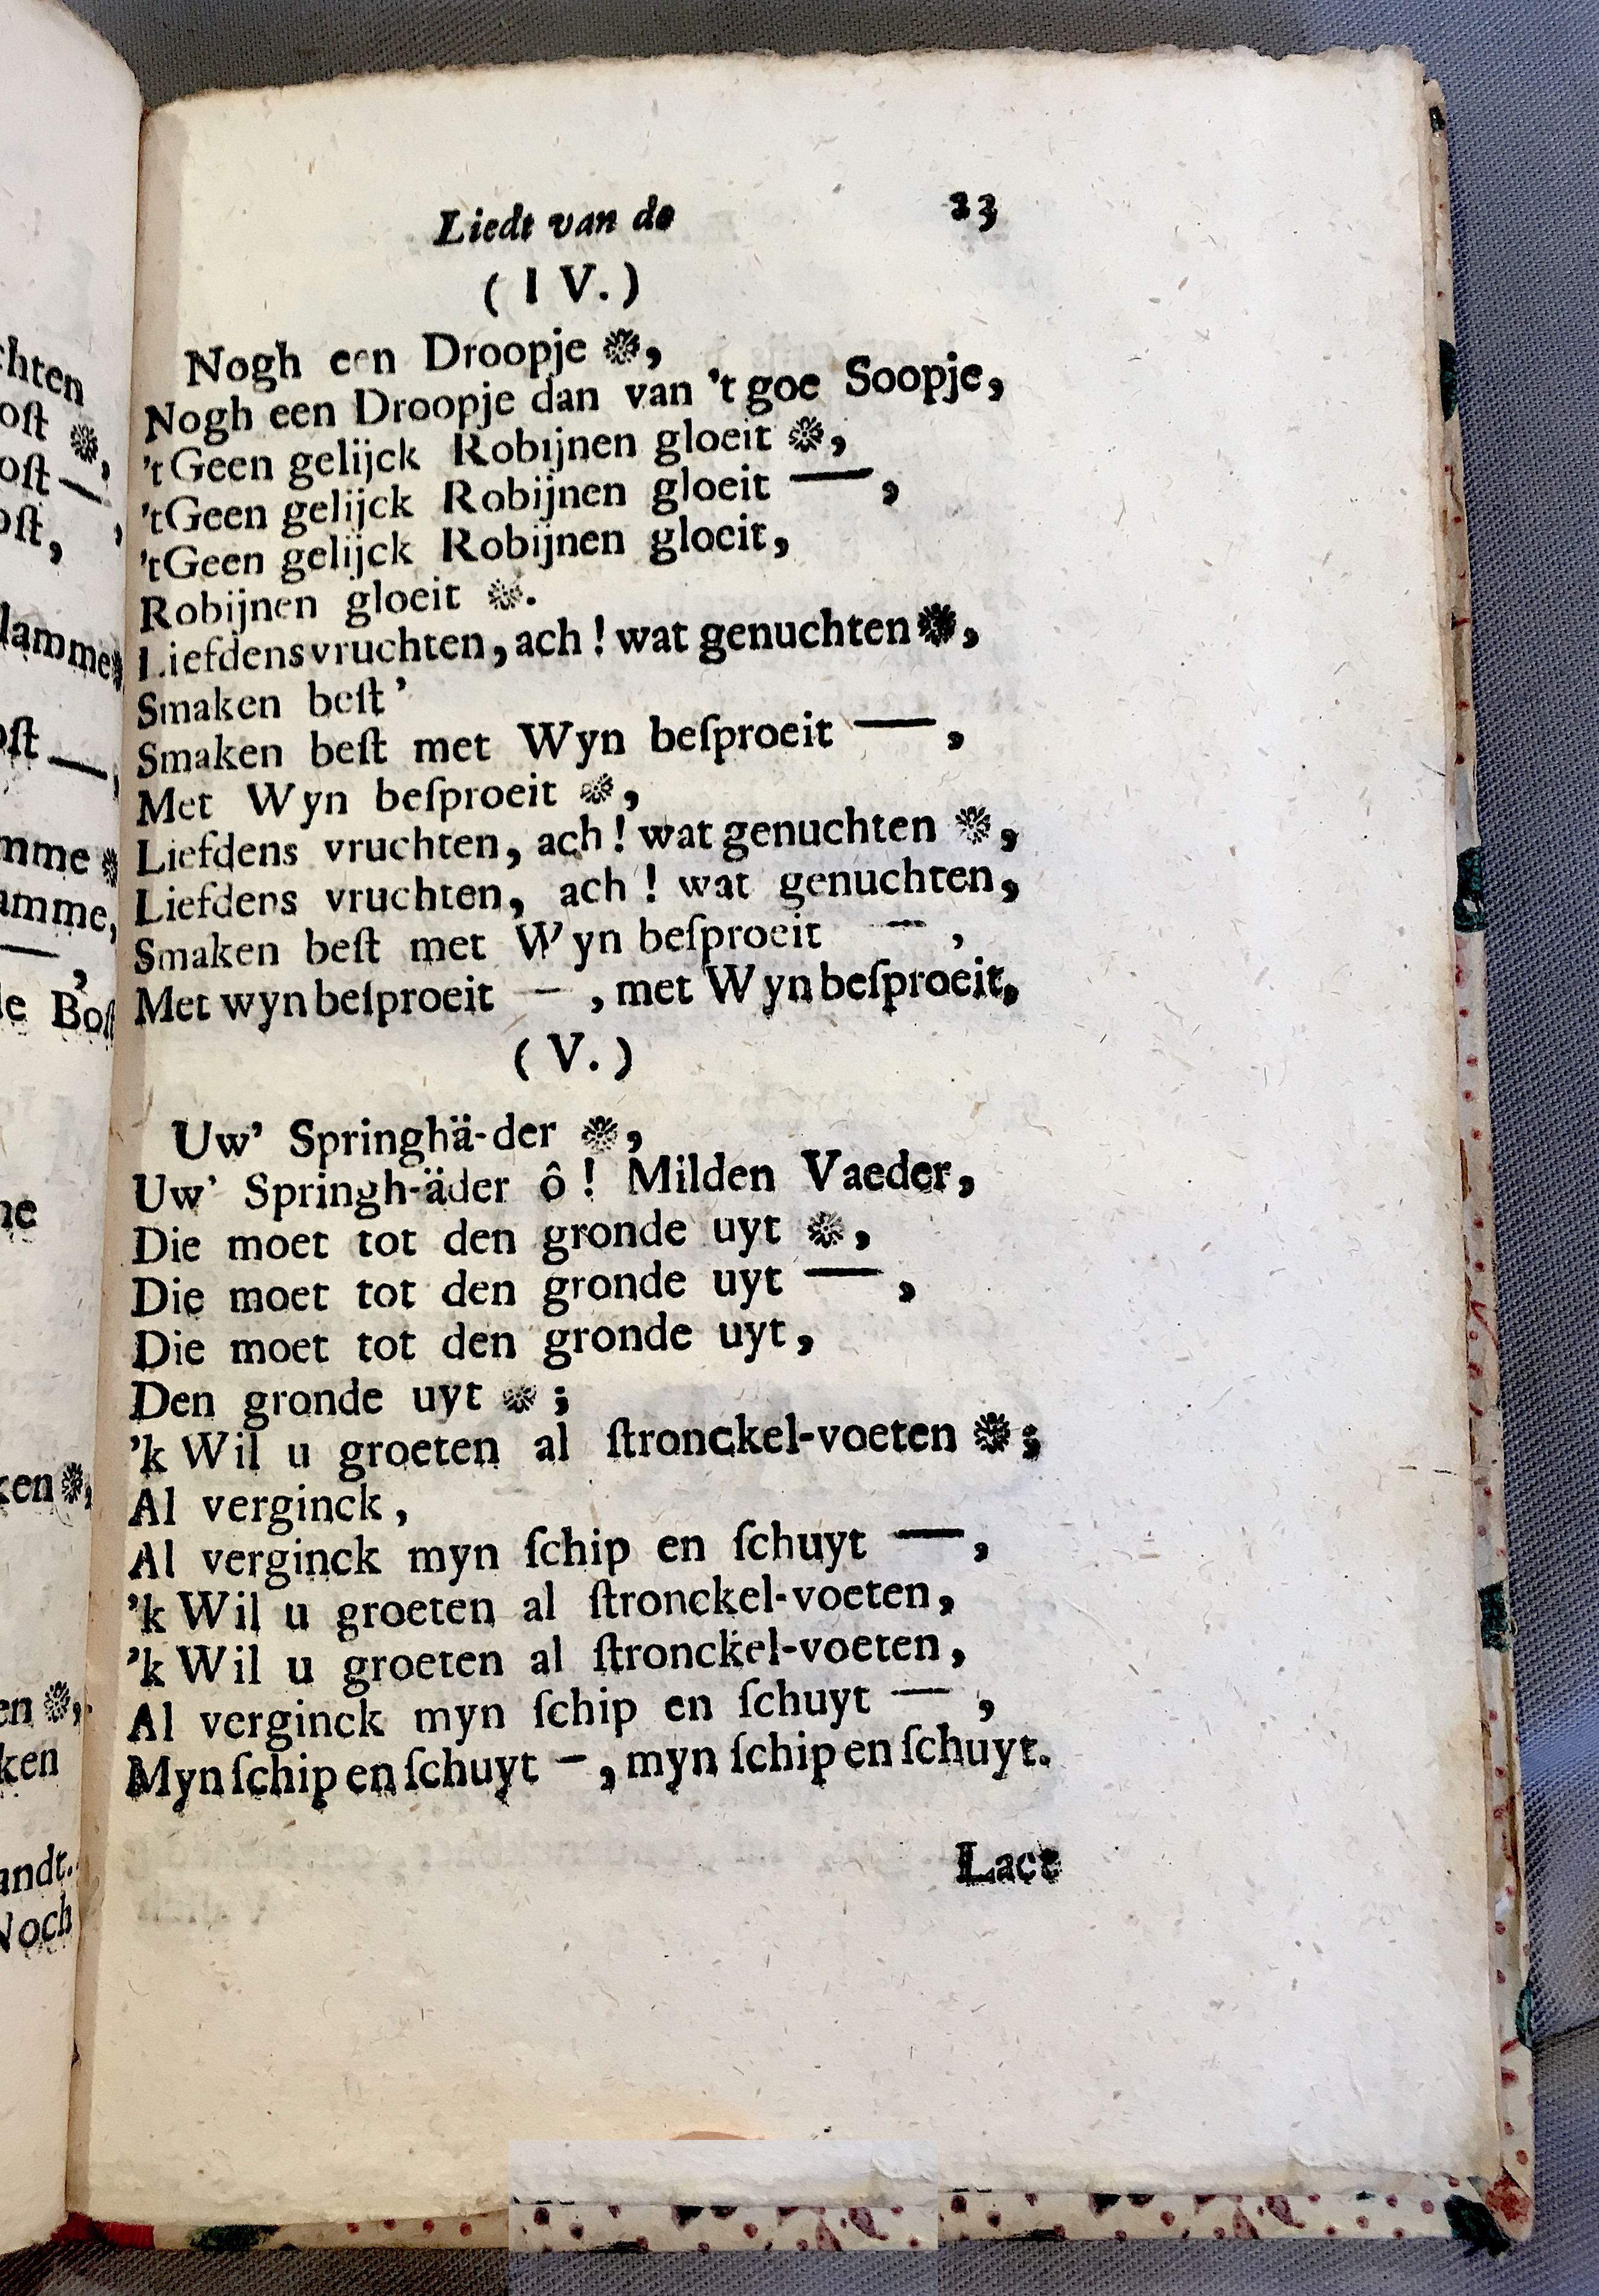 Liedt van de 23
( I V. )
Nogh een Droopje ❋,
Nogh een Droopje dan van 't goe Soopje,
't Geen gelijck Robijnen gloeit ❋,
'tGeen gelijck Robijnen gloeit —,
'tGeen gelijck Robijnen gloeit,
Robijnen gloeit ❋.
Liefdensvruchten, ach ! wat genuchten ❋,
Smaken beſt’
Smaken beſt met Wyn beſproeit —,
Met Wyn beſproeit ❋,
Liefdens vruchten, ach ! wat genuchten ❋,
Liefdens vruchten, ach ! wat genuchten,
Smaken beſt met Wyn beſproeit —,
Met wyn beſproeit —, met Wyn beſproeit,
( V. )
Uw' Springhä-der ❋,
Uw' Springh-äder ô ! Milden Vaeder,
Die moet tot den gronde uyt ❋,
Die moet tot den gronde uyt —,
Die moet tot den gronde uyt,
Den gronde uyt ❋ ;
'k Wil u groeten al ſtronckel-voeten ❋ ;
Al verginck,
Al verginck myn ſchip en ſchuyt —,
'k Wil u groeten al ſtronckel-voeten,
'k Wil u groeten al ſtronckel-voeten,
Al verginck myn ſchip en ſchuyt —,
Myn ſchip en ſchuyt —, myn ſchip en ſchuyt.
Laet